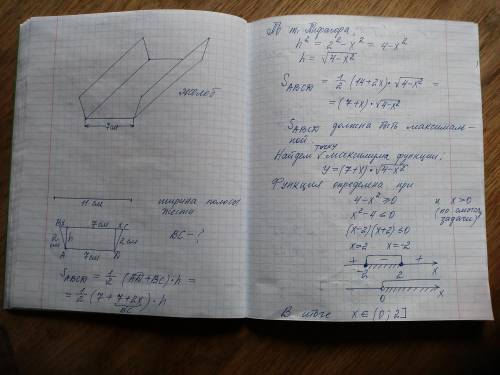 7см
желоб
11 см
ширина полосы
жести
B x 7см x C
2 см
h
2 см
A 7см D
BC - ?
S_ABCD = 1/2 (AD + BC) · h =
= 1/2 (7 + 7 + 2x) · h
BC
По т. Пифагора:
h² = 2² - x² = 4 - x²
h = √(4-x²)
S_ABCD = 1/2 (14+2x) · √(4-x²) =
= (7+x) · √(4-x²)
S_ABCD должна быть максималь-
ной.
Найдем точку максимума функции:
y = (7+x) · √(4-x²)
Функция определена при
4 - x² ≥ 0 и x > 0
x² - 4 ≤ 0 (по смыслу
(x-2)(x+2) ≤ 0 задачи)
x = 2 x = -2
+ - +
-2 2 x
0 x
В итоге x ∈ (0; 2]